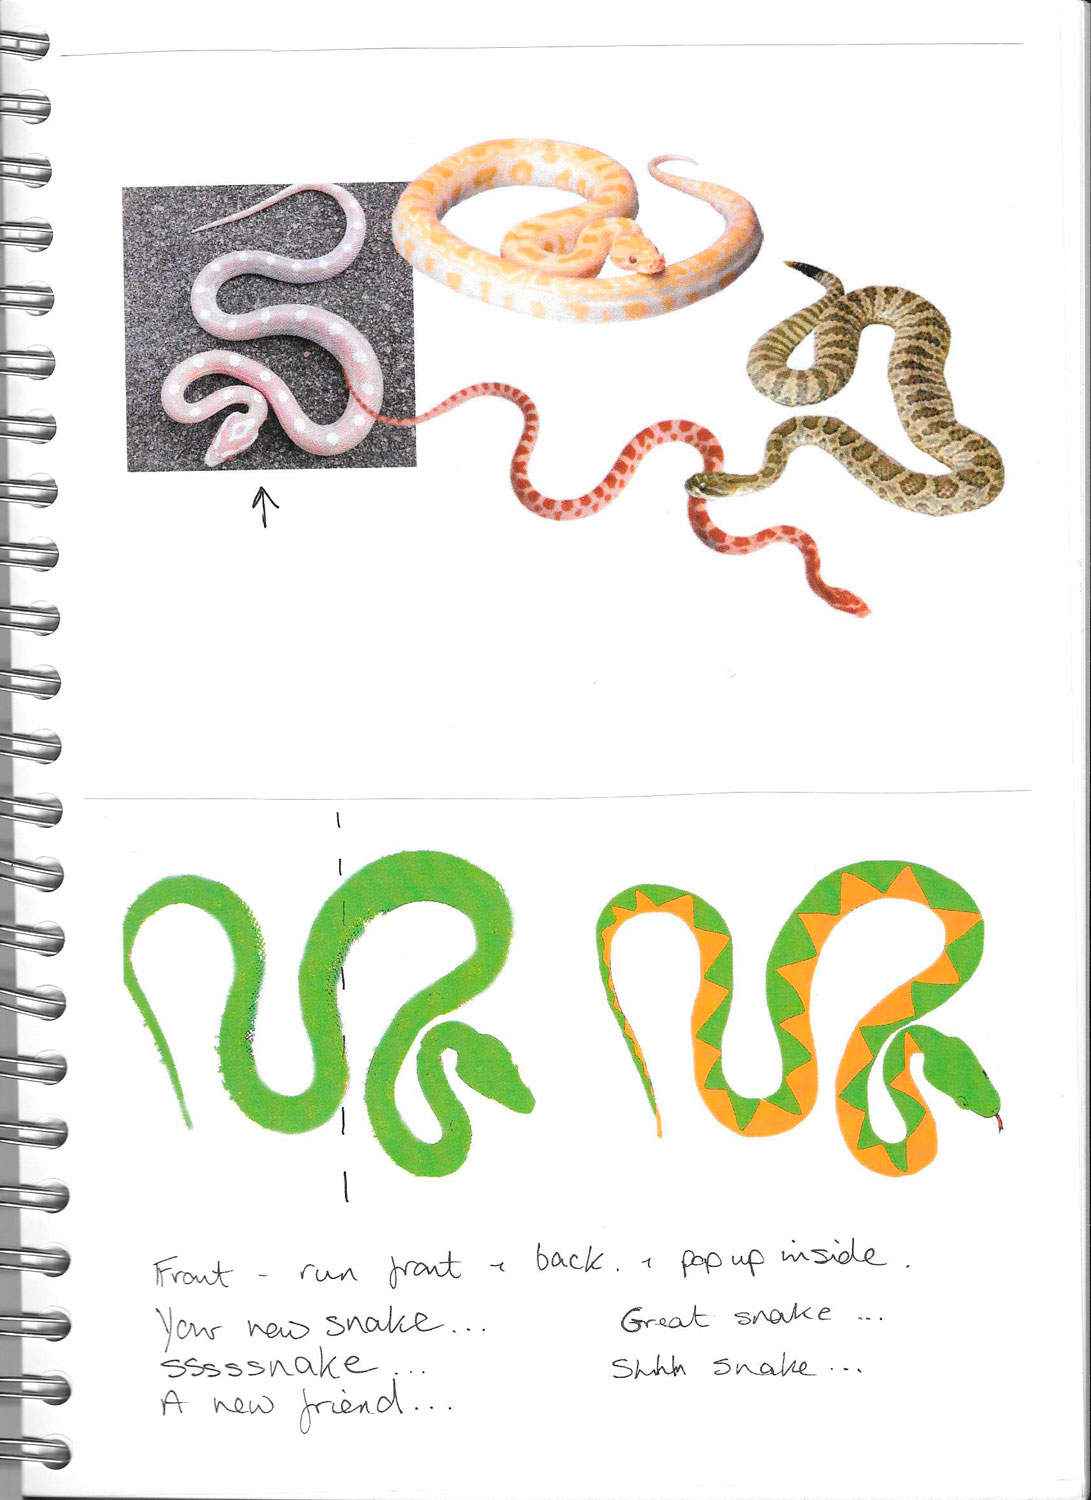 Front - run front + back. + pop up inside.
Your new snake...
sssssnake...
A new friend...
Great snake...
Shhh snake...